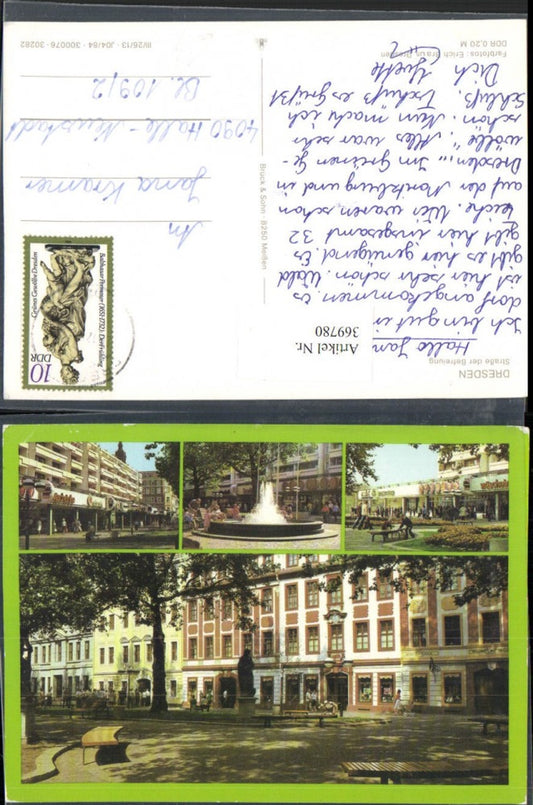 DRESDEN
Straße der Befreiung
Artikel Nr.
369780
Hallo Jan
Ich bin gut in
dorf angekommen. Es
ist hier sehr schön. Wald
gibt es hier genügend. Es
gibt hier insgesamt 32
Teiche. Wir waren schon
auf der Moritzburg und in
Dresden... Im Grünen Ge-
wölbe". Alles war sehr
schön. Nun mache ich
Schluß. Tschüß es grüßt
Dich Yvette
Farbfotos: Erich Braun, Dresden
DDR 0,20 M
Bruck & Sohn · 8250 Meißen
III/26/13 · J04/84 · 300076 · 30282
Grünes Gewölbe Dresden
Balthasar Permoser (1651-1732) Der Frühling
10 DDR
An
Jana Kramer
4090 Halle-Neustadt
Bl. 109/2